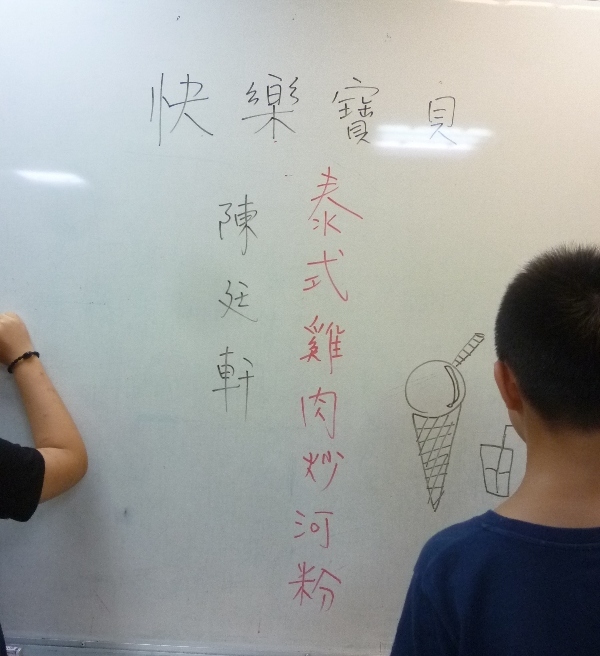 快樂寶貝
泰式雞肉炒河粉
陳廷軒